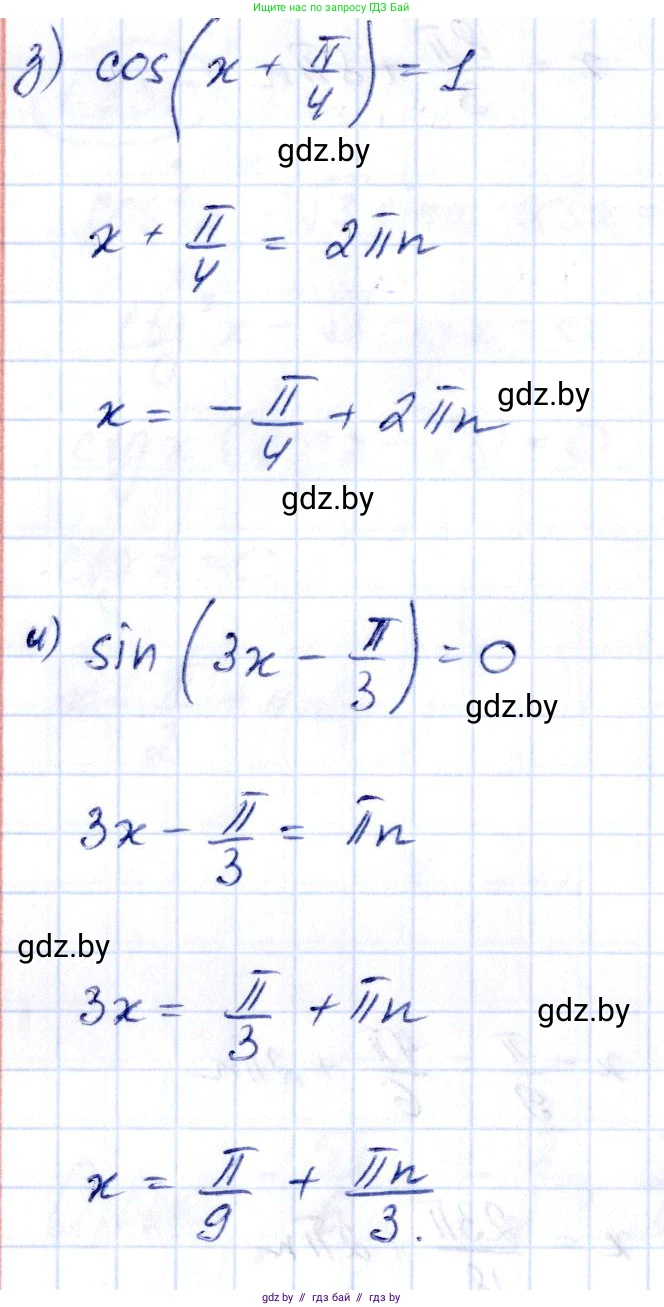 Ищите нас по запросу ГДЗ Бай
з) cos(x + π/4) = 1
gdz.by
x + π/4 = 2πn
x = - π/4 + 2πn
gdz.by
gdz.by
и) sin(3x - π/3) = 0
gdz.by
3x - π/3 = πn
gdz.by
3x = π/3 + πn
gdz.by
x = π/9 + πn/3.
gdz.by // гдз бай // гдз by